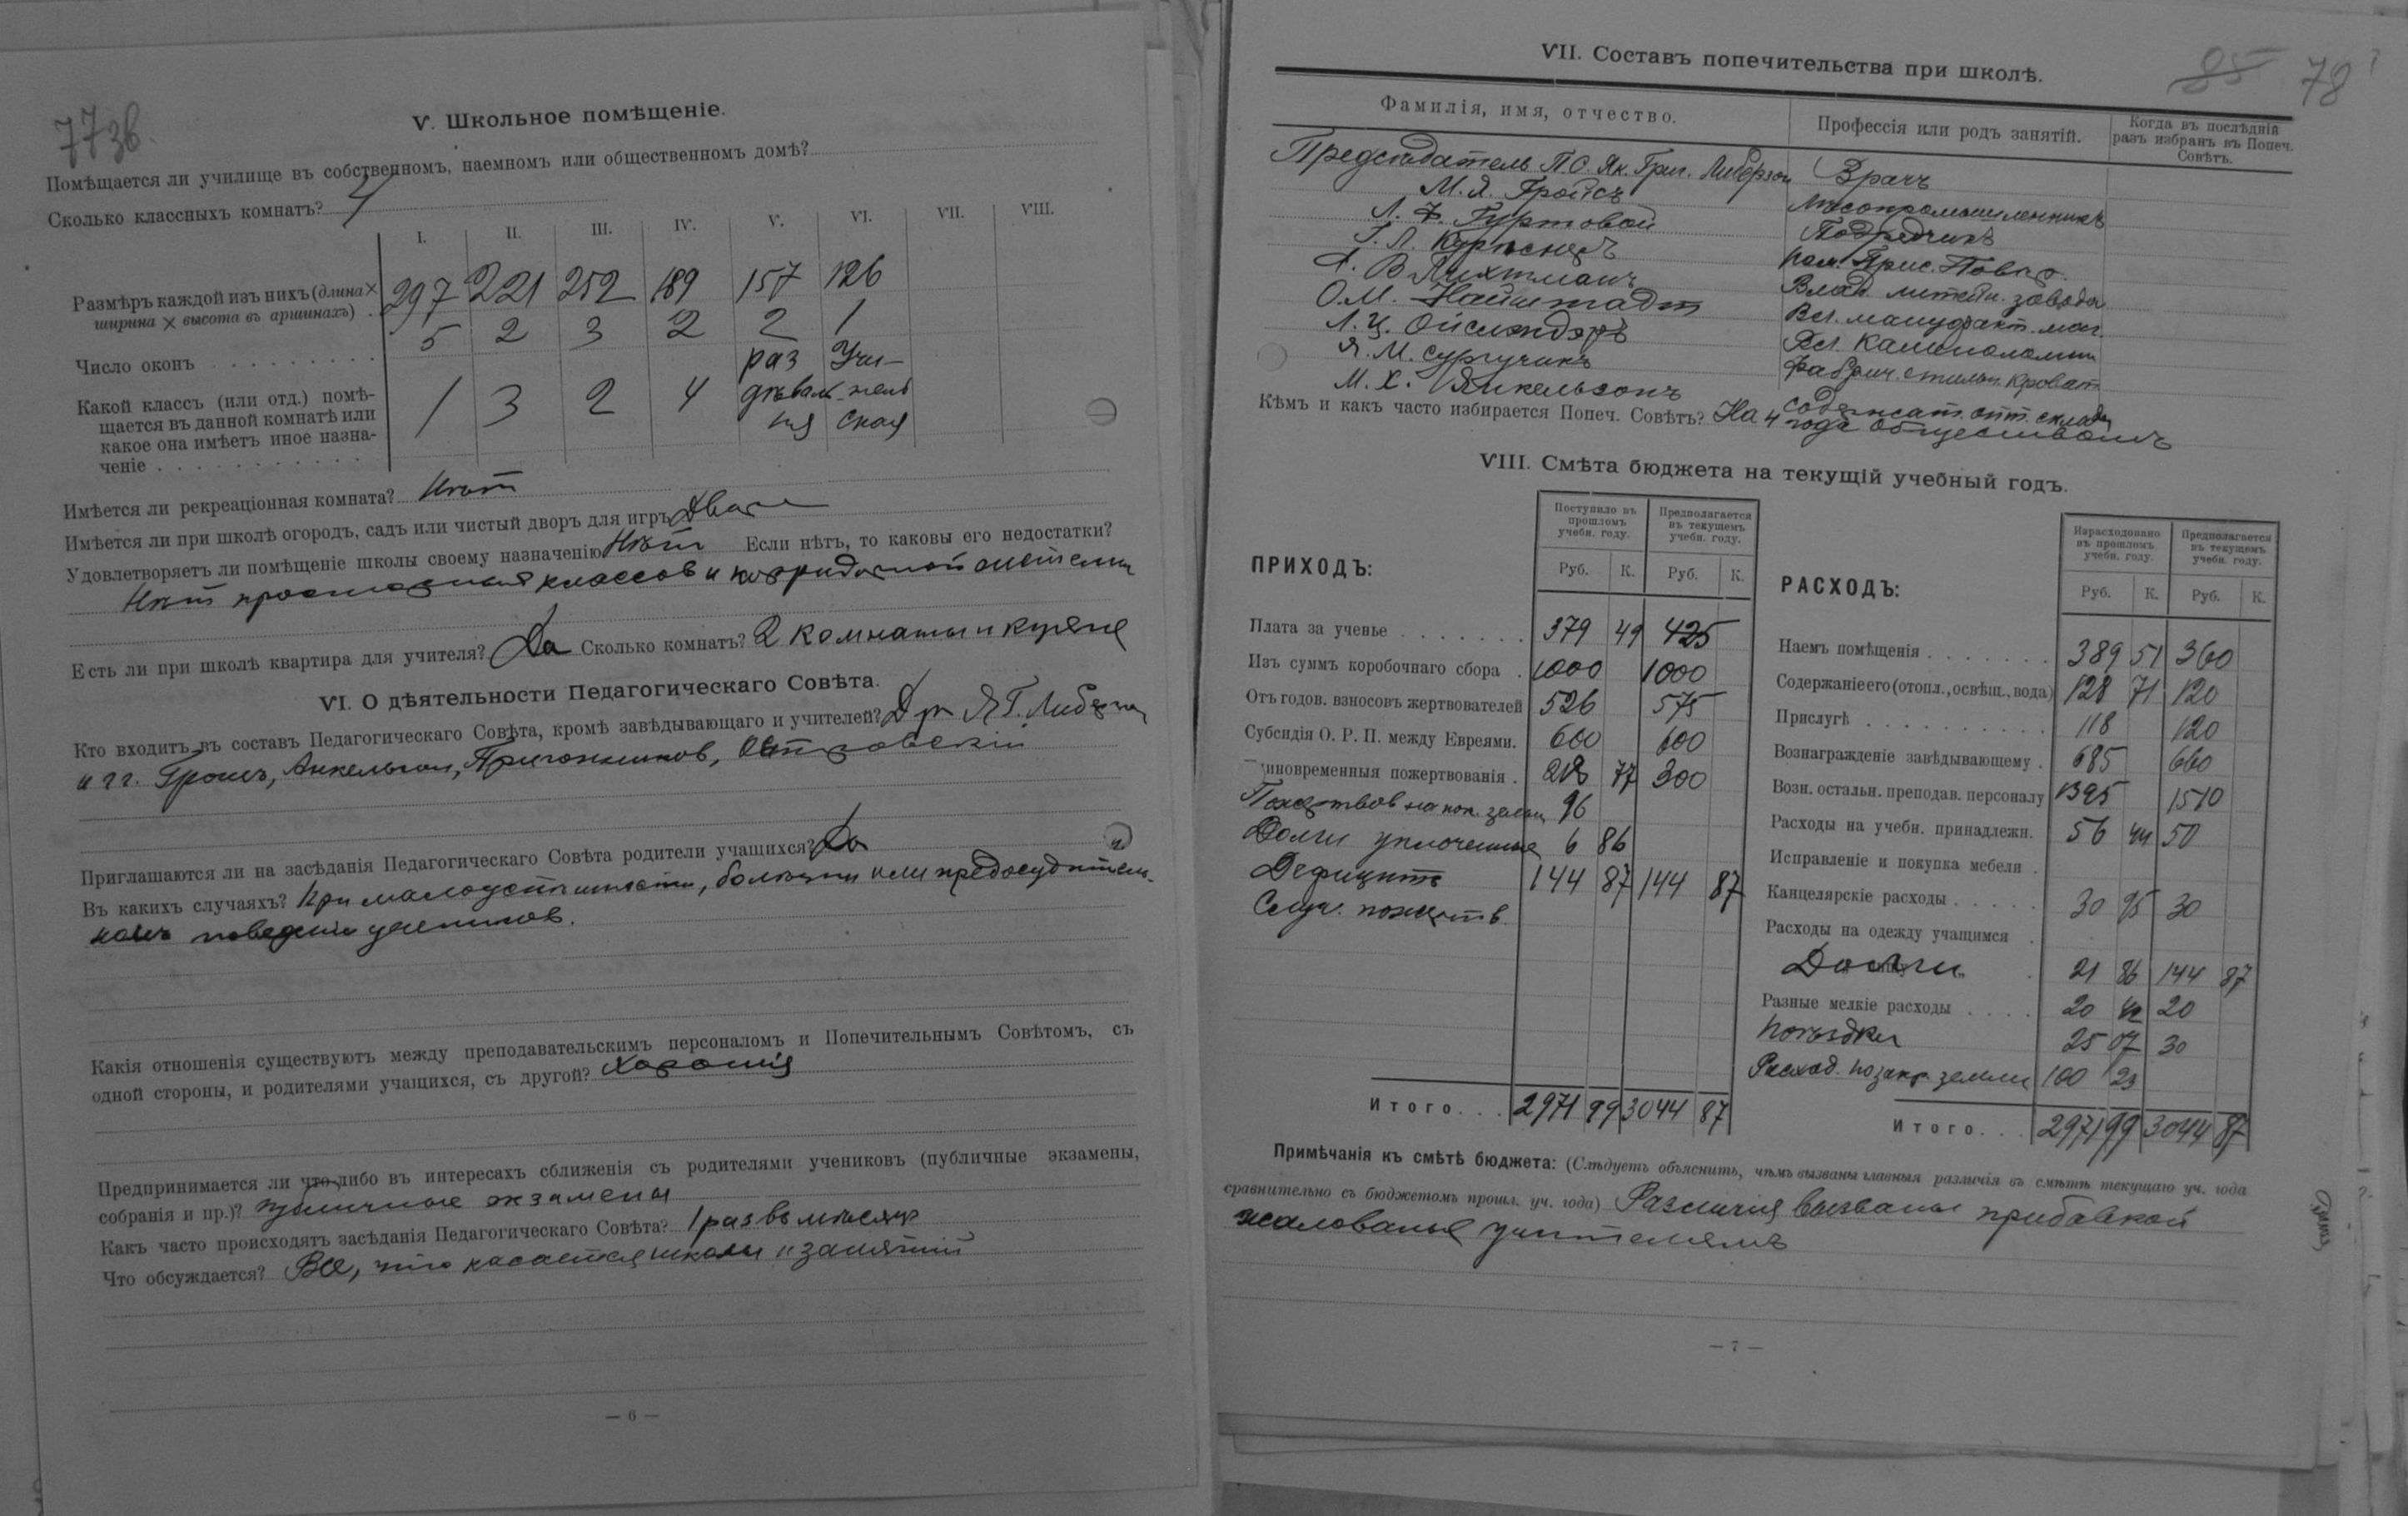 773б.
V. Школьное помѣщеніе.
Помѣщается ли училище въ собственномъ, наемномъ или общественномъ домѣ?
Сколько классныхъ комнатъ? 4
I. II. III. IV. V. VI. VII. VIII.
Размѣръ каждой изъ нихъ (длина × ширина × высота въ аршинахъ) . 297 221 252 189 157 126
Число оконъ 5 2 3 2 2 1
Какой классъ (или отд.) помѣ-
щается въ данной комнатѣ или
какое она имѣетъ иное назна-
ченіе 1 3 2 4 раз дѣваль ня Учи- тель ская
Имѣется ли рекреаціонная комната? Нѣт
Имѣется ли при школѣ огородъ, садъ или чистый дворъ для игръ
Удовлетворяетъ ли помѣщеніе школы своему назначенію Нѣт Если нѣтъ, то каковы его недостатки?
Нѣт классов и корридорной системы
Есть ли при школѣ квартира для учителя? Да Сколько комнатъ? 2 комнаты и кухня
VI. О дѣятельности Педагогическаго Совѣта.
Кто входитъ въ составъ Педагогическаго Совѣта, кромѣ завѣдывающаго и учителей? Др Я Г. Либерзон
и гг. Гройсъ, Янкельсон, Пригожников, Островскій
Приглашаются ли на засѣданія Педагогическаго Совѣта родители учащихся? Да
Въ какихъ случаяхъ? При малоуспѣшности, болѣзни или предосудитель-
номъ поведеніи учеников.
Какія отношенія существуютъ между преподавательскимъ персоналомъ и Попечительнымъ Совѣтомъ, съ
одной стороны, и родителями учащихся, съ другой? Хорошія
Предпринимается ли что-либо въ интересахъ сближенія съ родителями учениковъ (публичные экзамены,
собранія и пр.)? публичные экзамены
Какъ часто происходятъ засѣданія Педагогическаго Совѣта? 1 раз въ мѣсяцъ
Что обсуждается? Все, что касается школы и занятій
— 6 —
85 78
VII. Составъ попечительства при школѣ.
Фамилія, имя, отчество. Профессія или родъ занятій. Когда въ послѣдній разъ избранъ въ Попеч. Совѣтъ.
Предсѣдатель П.С. Як. Григ. Либерзон Врачъ
М. Я. Гройсъ Лѣсопромышленникъ
Л. Гуртовой Подрядчикъ
Г. Л. пом. Прис. Повѣр.
В. Лихтманъ Влад. литейн. завода
О. М. Найштадт Вл. мануфакт. маг.
Л. Ц. Ойслендеръ Вл. каменоломни
Я. М. Сургучикъ Фабрич. кроват
М. Х. Янкельсонъ Содержат. опт. склада
Кѣмъ и какъ часто избирается Попеч. Совѣтъ? На 4 года обществомъ
VIII. Смѣта бюджета на текущій учебный годъ.
ПРИХОДЪ: Поступило въ прошломъ учебн. году. Предполагается въ текущемъ учебн. году.
Руб. К. Руб. К.
Плата за ученье 379 49 425
Изъ суммъ коробочнаго сбора . 1000 1000
Отъ годов. взносовъ жертвователей 526 575
Субсидія О. Р. П. между Евреями. 600 600
иновременныя пожертвованія . 218 77 300
Пожертвов на пок. земли 96
Долги уплоченные 6 86
Дефицитъ 144 87 144 87
Случ. пожертв
Итого. . . 2971 99 3044 87
РАСХОДЪ: Израсходовано въ прошломъ учебн. году. Предполагается въ текущемъ учебн. году.
Руб. К. Руб. К.
Наемъ помѣщенія 389 51 360
Содержаніе его (отопл., освѣщ., вода) 128 71 120
Прислугѣ 118 120
Вознагражденіе завѣдывающему . 685 660
Возн. остальн. преподав. персоналу 1395 1510
Расходы на учебн. принадлежн. 56 44 50
Исправленіе и покупка мебели .
Канцелярскіе расходы 30 95 30
Расходы на одежду учащимся .
Долги 21 86 144 87
Разные мелкіе расходы 20 42 20
Поѣздки 25 07 30
Расход. по закр. земли 100 23
Итого. . . 2971 99 3044 87
Примѣчанія къ смѣтѣ бюджета: (Слѣдуетъ объяснить, чѣмъ вызваны главныя различія въ смѣтѣ текущаго уч. года
сравнительно съ бюджетомъ прошл. уч. года) Различія вызваны прибавкой
жалованья учителямъ
— 7 —